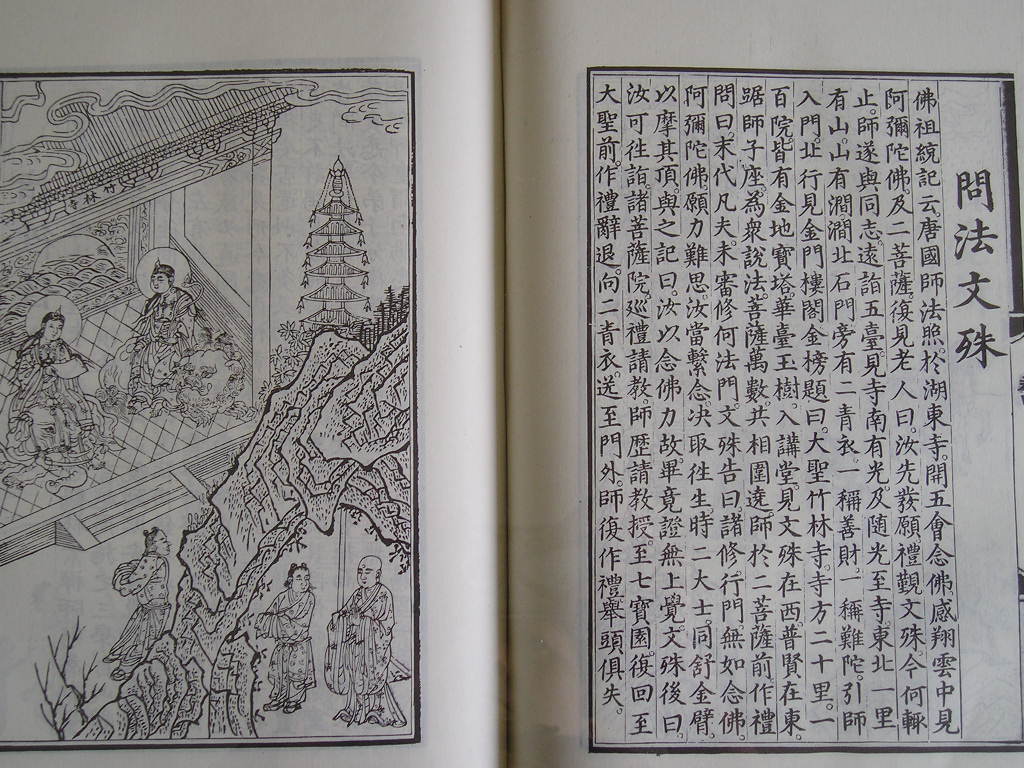 問法文殊
佛祖統記云。唐國師法照。於湖東寺。開五會念佛。感翔雲中見
阿彌陀佛。及二菩薩。復見老人曰。汝先發願。禮觀文殊。今何輒
止。師遂與同志。遠詣五臺。見寺南有光。及随光至寺。東北一里
有山。山有澗。澗北石門。旁有二青衣。一稱善財。一稱難陀。引師
入門。北行見金門樓閣。金榜題曰。大聖竹林寺。寺方二十里。一
百院。皆有金地寶塔。華臺玉樹。入講堂。見文殊在西。普賢在東。
踞師子座。為衆說法。菩薩萬數。共相圍遶。師於二菩薩前。作禮
問曰。末代凡夫。未審修何法門。文殊告曰。諸修行門。無如念佛。
阿彌陀佛。願力難思。汝當繫念。决取徃生。時二大士。同舒金臂。
以摩其頂。與之記曰。汝以念佛力故。畢竟證無上覺。文殊後曰。
汝可徃詣。諸菩薩院。巡禮請教。師歷請教授。至七寶園。復回至
大聖前。作禮辭退。向二青衣。送至門外。師復作禮。舉頭俱失。
竹林寺